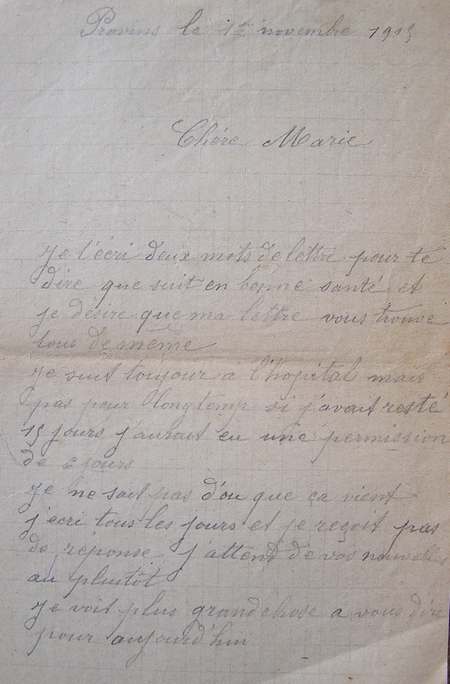 Provins le 12 novembre 1915
Chére Marie
Je t'écri deux mots de lettre pour te
dire que suit en bonne santé et
je désire que ma lettre vous trouve
tous de même
Je suit toujour a l'hopital mais
pas pour longtemp si j'avait resté
15 jours j'aurait eu une permission
de 6 jours
Je ne sait pas d'ou que ça vient
j'ecri tous les jours et je reçoit pas
de réponse j'attend de vos nouvelles
au plutôt
Je voit plus grandchose a vous dire
pour aujourd'hui